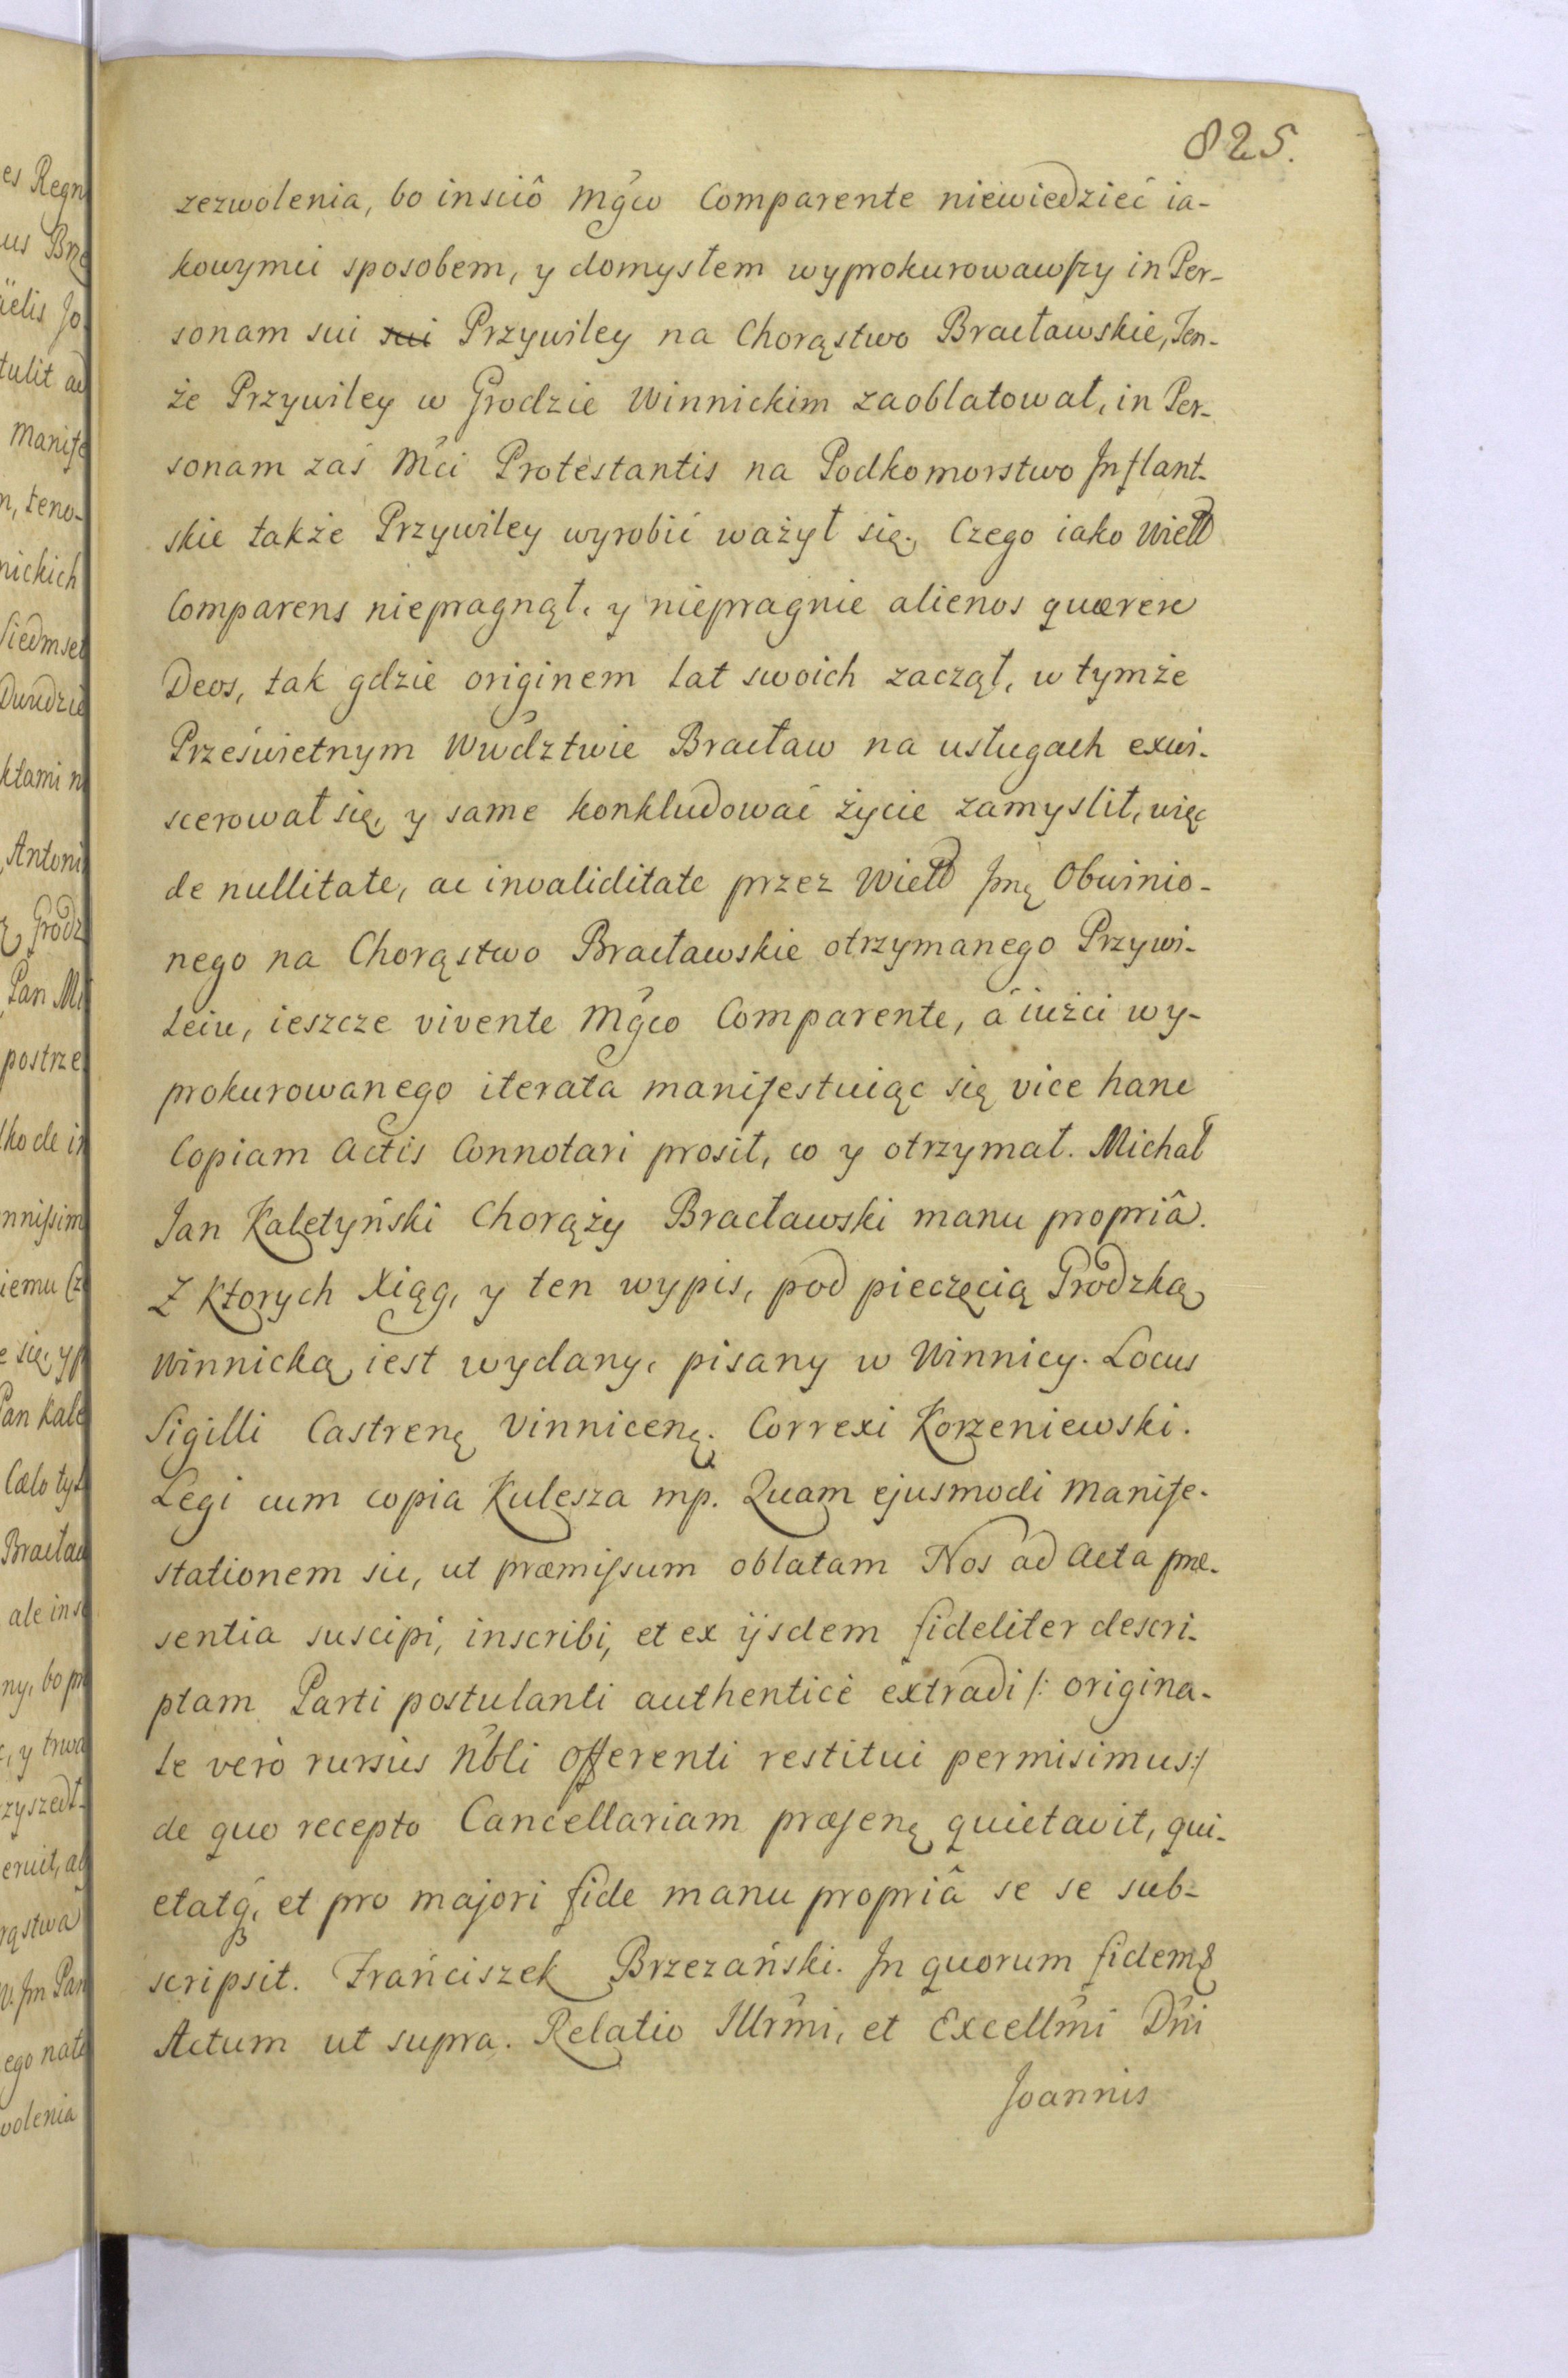 825.
zezwolenia, bo insciô Mgco Comparente niewiedzieć ia-
kowymci sposobem, y domysłem wyprokurowawszy in Per-
sonam sui sui Przywiley na Chorąstwo Bracławskie, Ten-
że Przywiley w Grodzie Winnickim zaoblatował, in Per-
sonam zaś Mci Protestantis na Podkomorstwo Inflant-
skie także Przywiley wyrobić ważył się. Czego iako Wielb
Comparens niepragnął, y niepragnie alienos quærere
Deos, tak gdzie originem lat swoich zaczął, w tymże
Prześwietnym Wwdztwie Bracław na usługach exwi-
scerował się, y same konkludować życie zamyslił, więc
de nullitate, ac invaliditate przez Wielb Jmę Obwinio-
nego na Chorąstwo Bracławskie otrzymanego Przywi-
leiu, ieszcze vivente Mgco Comparente, á iużci wy-
prokurowanego iterata manifestuiąc się vice hanc
Copiam Actis Connotari prosił, co y otrzymał. Michał
Jan Kaletyński Chorąży Bracławski manu propriâ.
Z Ktorych Xiąg, y ten wypis, pod pieczęcią Grodzką
Winnicką, iest wydany, pisany w Winnicy. Locus
Sigilli Castrenę Vinnicenę. Correxi Korzeniewski.
Legi cum copia Kulesza mp. Quam ejusmodi Manife-
stationem sic, ut præmissum oblatam Nos ad Acta præ-
sentia suscipi, inscribi, et ex ijsdem fideliter descri-
ptam Parti postulanti authenticè extradi /: origina-
le verò rursus Nbli Offerenti restitui permisimus :/
de quo recepto Cancellariam præsenę quietavit, qui-
etatq, et pro majori fide manu propriâ se se sub-
scripsit. Frańciszek Brzezański. In quorum fidem &
Actum ut supra. Relatio Illrmi, et Excellmi Dni
Joannis